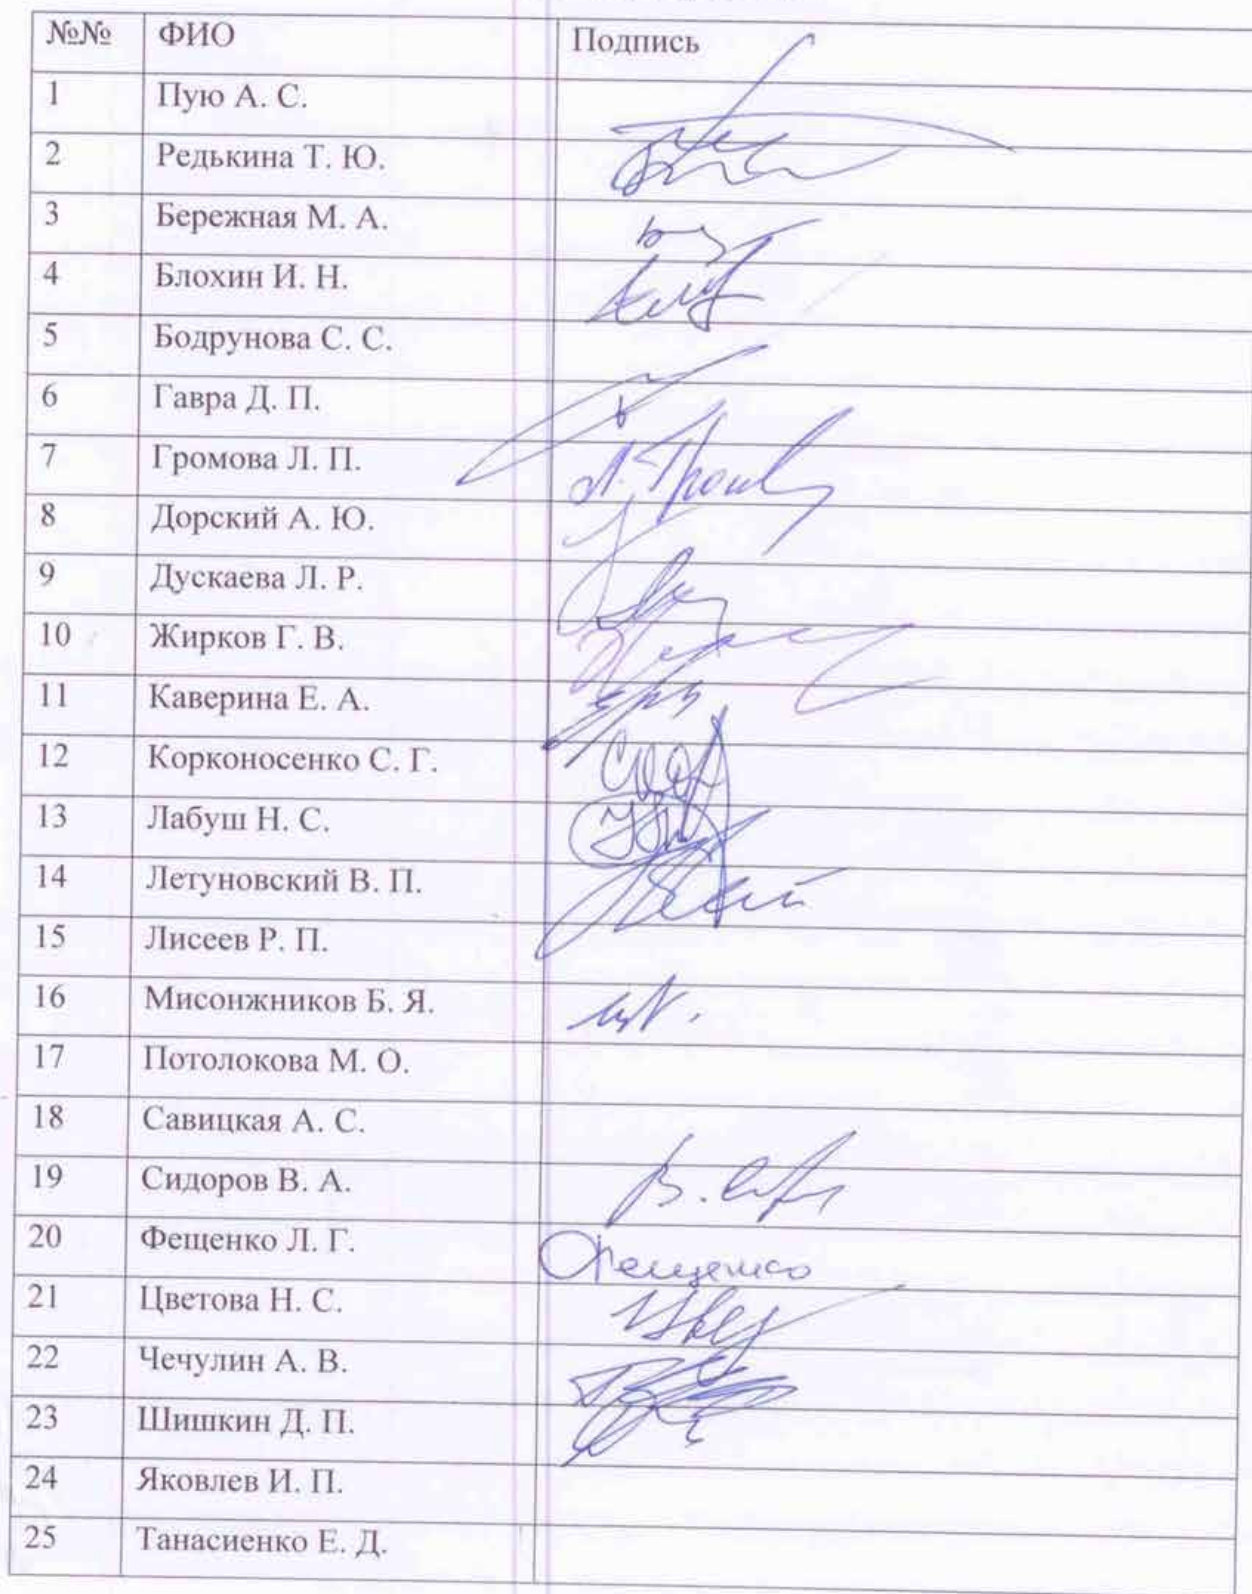 №№ ФИО Подпись
1 Пую А. С.
2 Редькина Т. Ю.
3 Бережная М. А.
4 Блохин И. Н.
5 Бодрунова С. С.
6 Гавра Д. П.
7 Громова Л. П.
8 Дорский А. Ю.
9 Дускаева Л. Р.
10 Жирков Г. В.
11 Каверина Е. А.
12 Корконосенко С. Г.
13 Лабуш Н. С.
14 Летуновский В. П.
15 Лисеев Р. П.
16 Мисонжников Б. Я.
17 Потолокова М. О.
18 Савицкая А. С.
19 Сидоров В. А.
20 Фещенко Л. Г. Фещенко
21 Цветова Н. С.
22 Чечулин А. В.
23 Шишкин Д. П.
24 Яковлев И. П.
25 Танасиенко Е. Д.